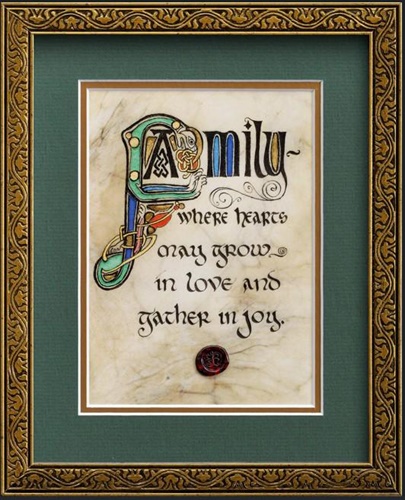 Family~
where hearts
may grow~
in love and
gather in joy.